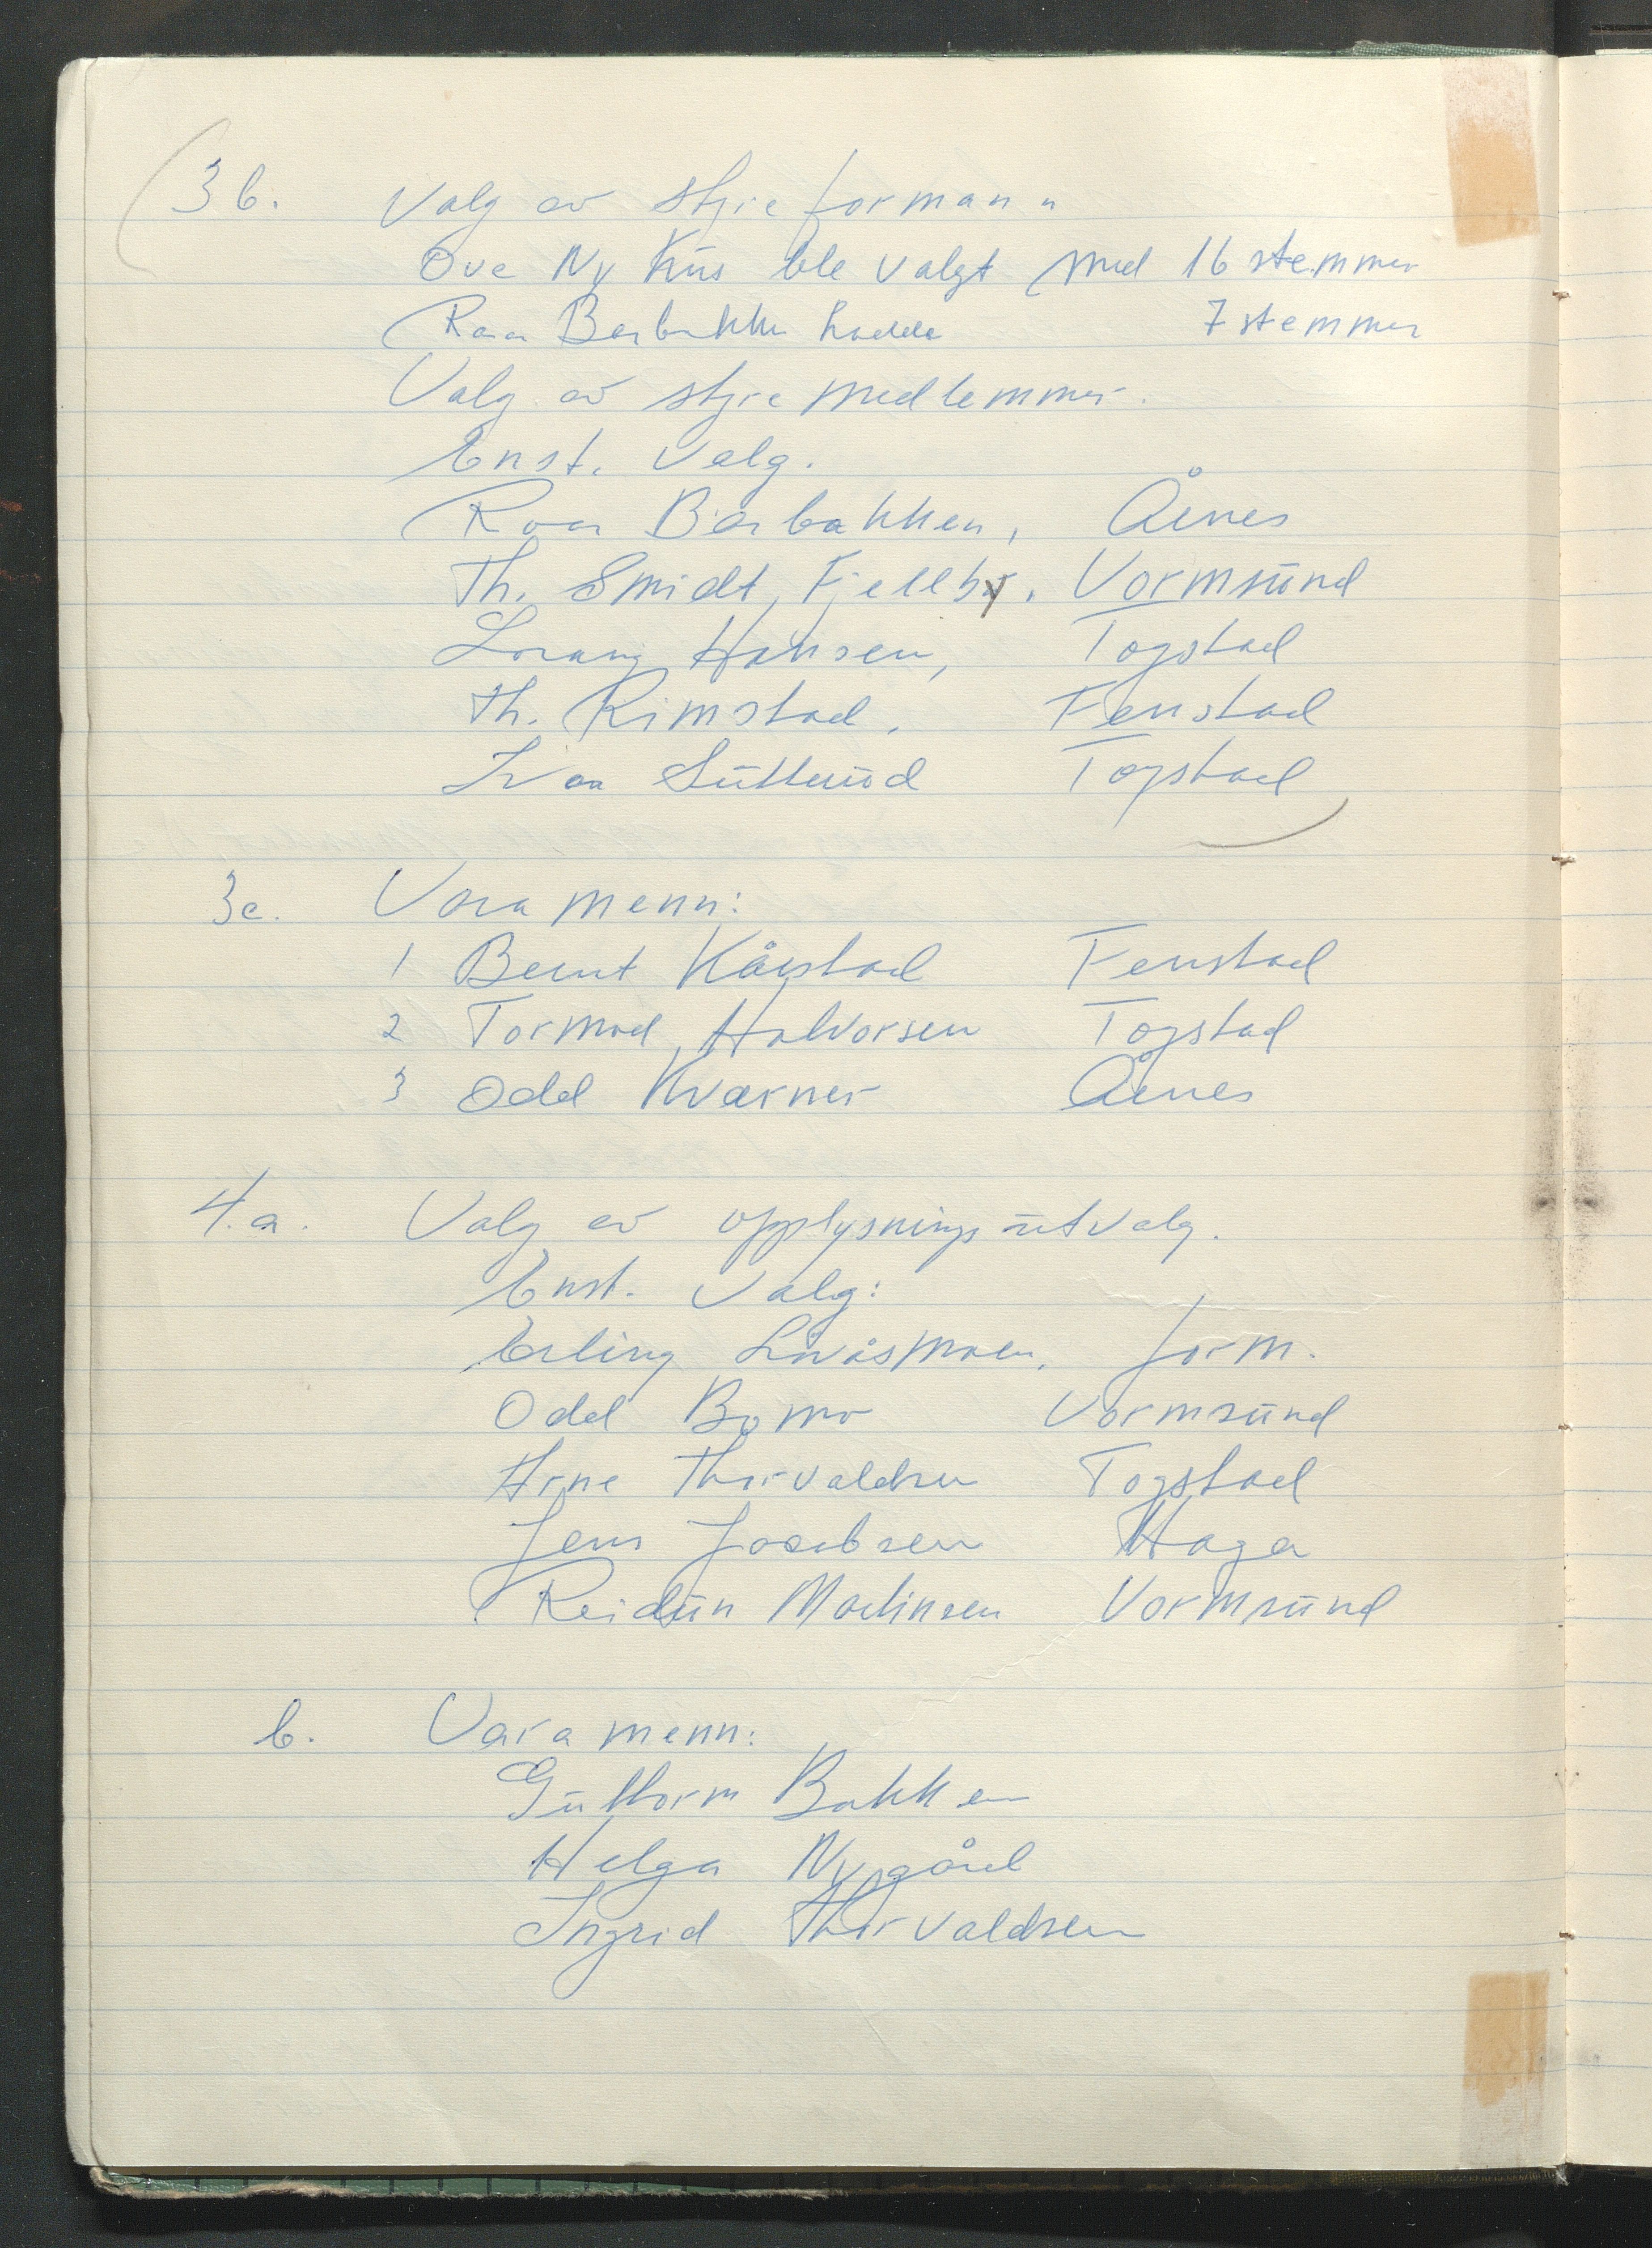 3b. Valg av styreformann
Ove Ny Hus ble valgt med 16 stemmer
Roar Berbakken hadde 7 stemmer
Valg av styremedlemmer.
Enst. valg.
Roar Berbakken, Årnes
Th. Smidt, Fjellby. Vormsund
Lorang Hansen, Togstad
Th. Rimstad. Fenstad
Ivar Togstad
3c. Varamenn:
1 Bernt Kårstad Fenstad
2 Tormod Halvorsen Togstad
3 Odd Kværner Årnes
4.a. Valg av opplysningsutvalg.
Enst. valg:
Erling Livåsmoen, form.
Odd Bomo Vormsund
Arne Thorvaldsen Togstad
Jens Jacobsen Haga
Reidun Martinsen Vormsund
b. Varamenn:
Guttorm Bakken
Helga Nygård
Ingrid Thorvaldsen